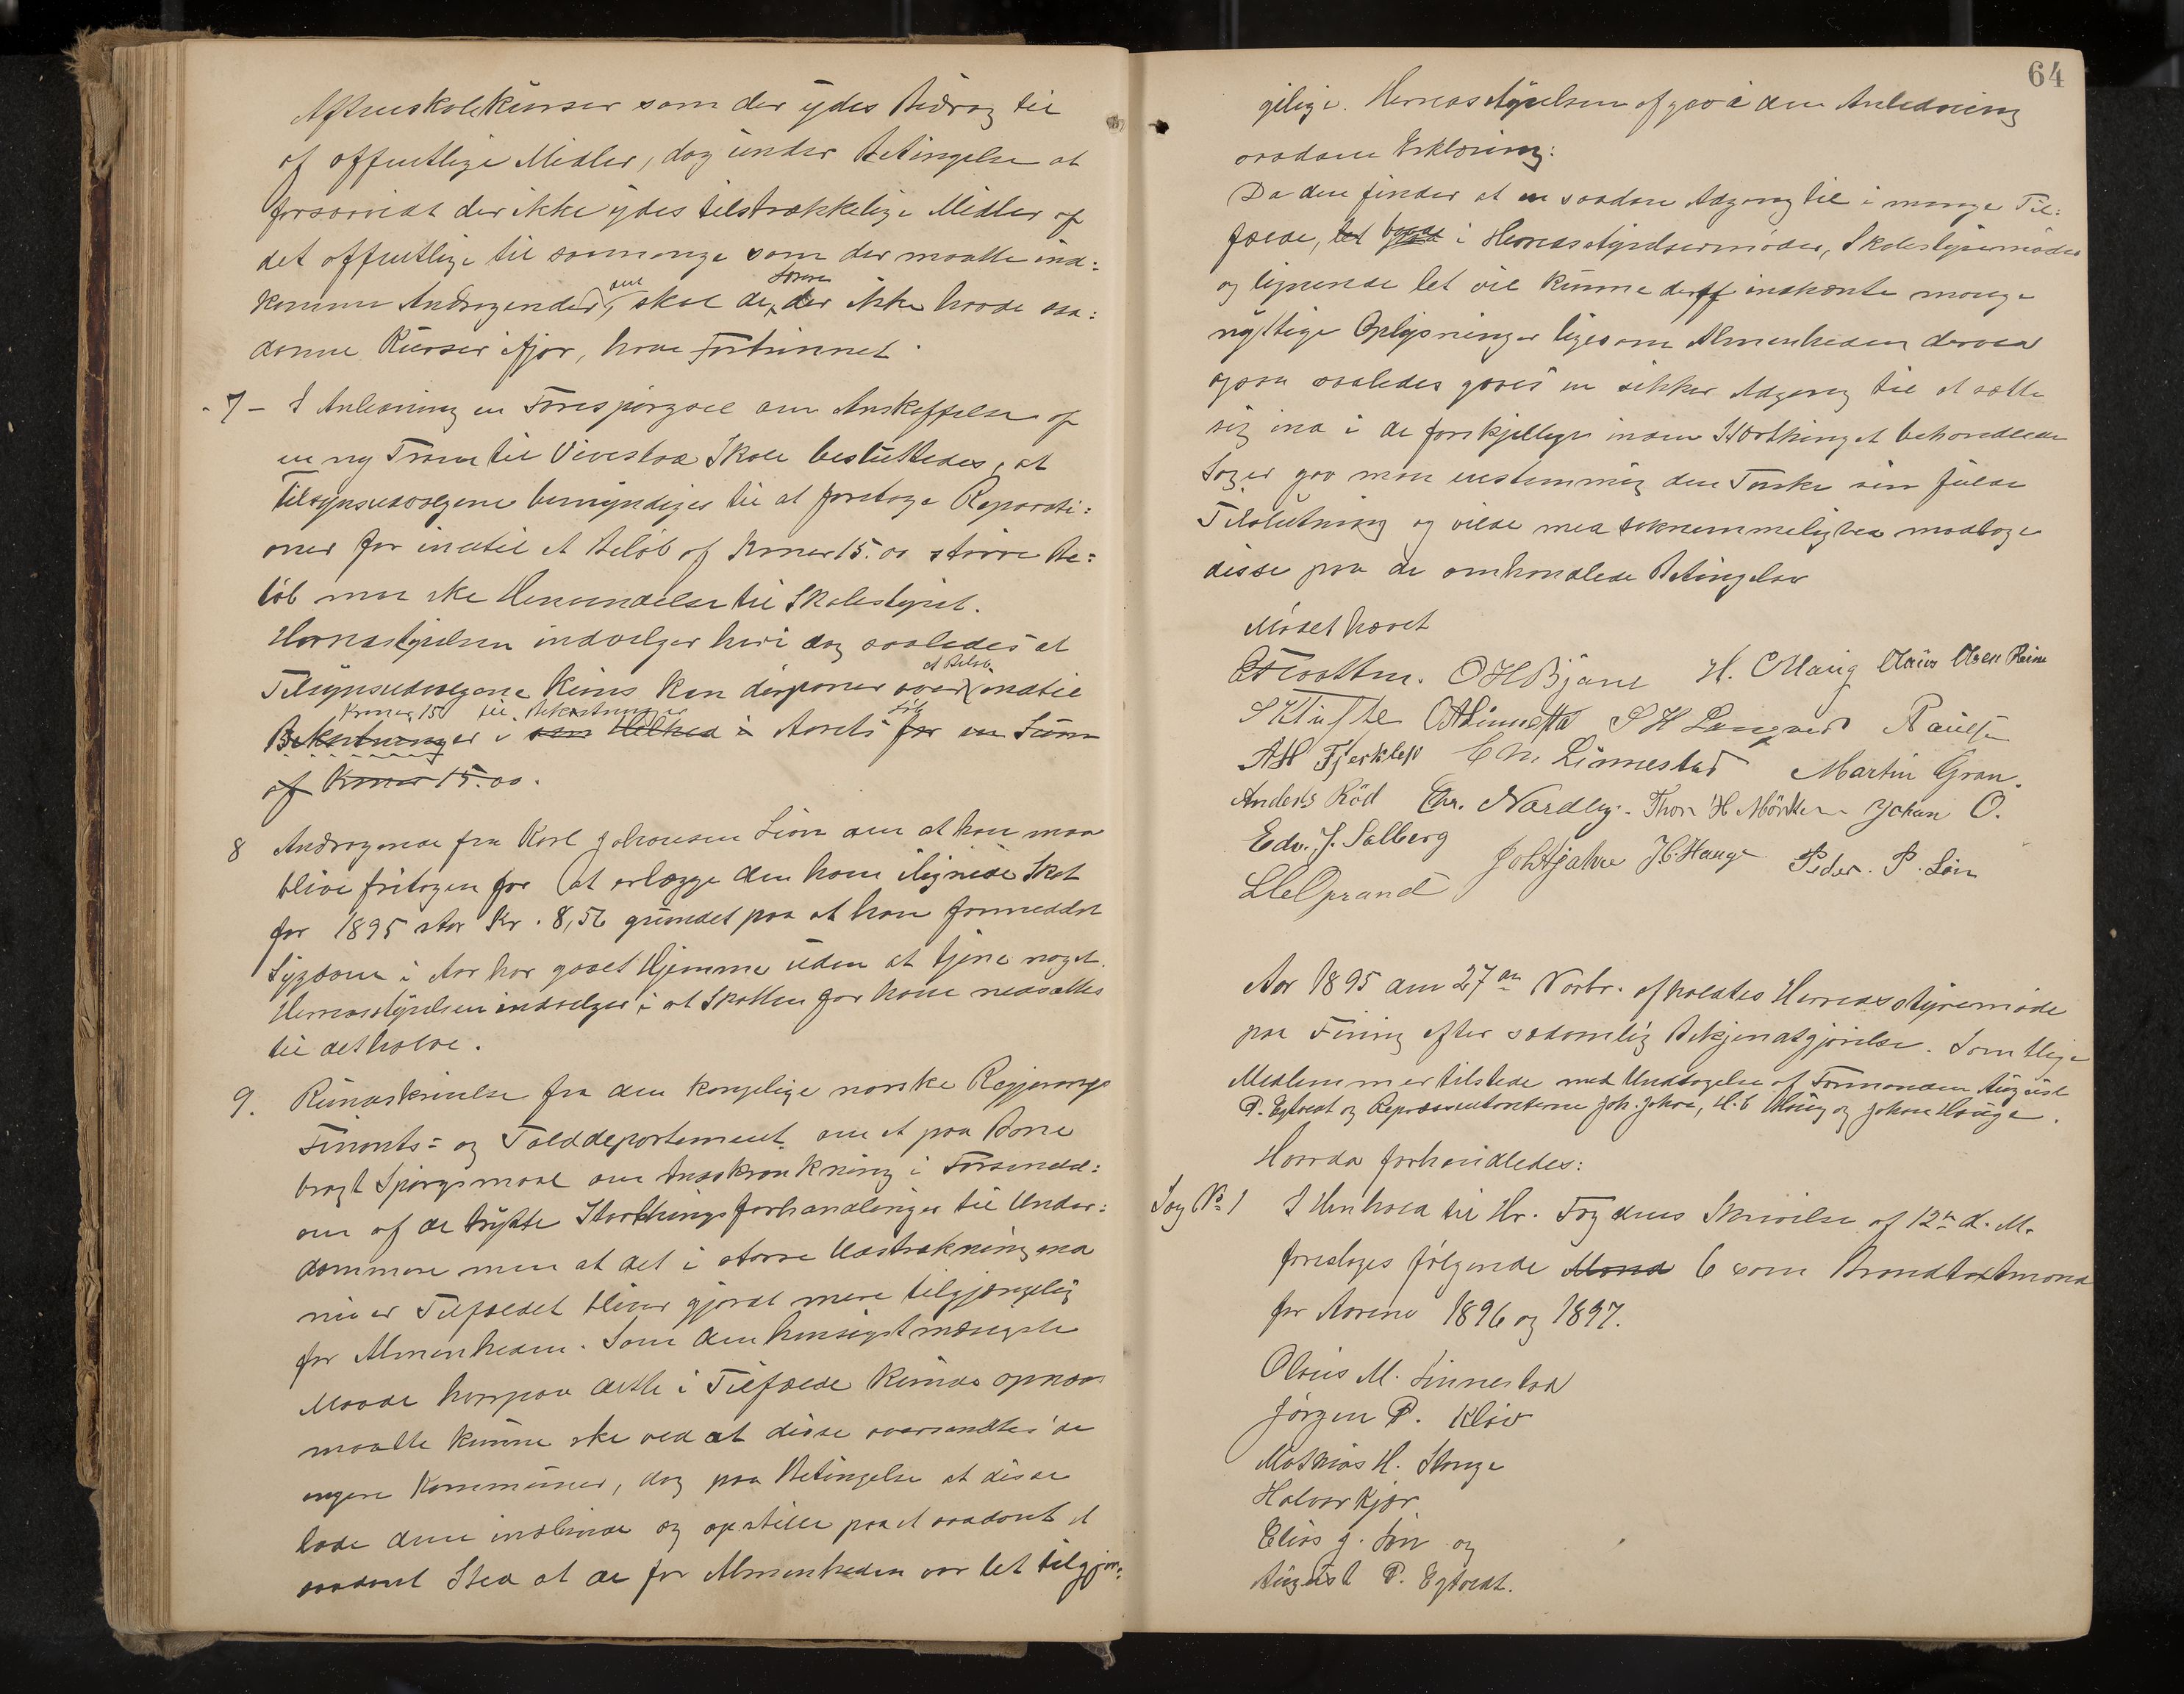 Aftenskolekurser som der ydes Bidrag til
af offentlige Midler, dog under Betingelse at
forsaavidt der ikke ydes tilstrækkelige Midler af
det offentlige til saamange som der maatte ind=
komme Andragender om, skal de, som der ikke havde saa=
danne Kurser ifjor, have Fortrinnet.
- 7 - I Anledning en Forespørgsel om Anskaffelse af
en ny Tram til Vivestad Skole besluttedes, at
Tilsynsudvalgene bemyndiges til at foretage Reparati=
oner for indtil et Beløb af Kroner 15.00 større Be=
løb maa ske Henvendelse til Skolestyret.
Herredsstyrelsen indvilger heri dog saaledes at
Tilsynsudvalgene kuns kan disponer over et Beløb indtil
Kroner 15 til Bekostninger
Bekostninger i Aarets for en Sum
af Kroner 15.00.
8 Andragende fra Karl Johansen Lion om at han maa
blive fritagen for at erlægge den ham ilignede Skat
for 1895 stor Kr. 8,56 grundet paa at han formedelst
Sygdom i Aar har gaaet Hjemme uden at tjene noget.
Herredsstyrelsen indvilger i at Skatten for ham nedsættes
til det halve.
9. Rundskrivelse fra den kongelige norske Regjerings
Finants= og Tolddepartement om et paa Bane
bragt Spørgsmaal om Indskrænkning i Forsendel=
sen af de trykte Storthingsforhandlinger til Under=
dommere men at det i større Udstrækning end
nu er Tilfældet bliver gjordt mere tilgjængelig
for Almenheden. Som den hensigtmæssigste
Maade hvorpaa dette i Tilfælde kunde opnaaes
maatte kunne ske ved at disse oversendtes de
Kommuner, dog paa Betingelse at disse
lade dem indbinde og opstille paa et saadant
saadant Sted at de for Almenheden var let tilgjæn=
64
gelige. Herredsstyrelsen afgav i den Anledning
saadan Erklæring:
Da den finder at en saadan Adgang til i mange Til=
fælde, i Herredsstyrelsermøder, Skolestyremøder
og lignende let vil kunne deraf indhente mange
nyttige Oplysninger ligesom Almenheden derved
ogsaa saaledes gaves en sikker Adgang til at sætte
sig ind i de forskjellige inden Storthinget behandlede
Sager gav man enstemmig den Tanke sin fulde
Tilslutning og vilde med taknemmelighed modtage
disse paa de omhandlede Betingelser
Mødet hævet
O H Bjane H. C Haug Olaus Olsen Reine
S Klufte O A Linnestad S H Langved Paulsen
A H Fjerklep C M. Linnestad Martin Gran.
Anders Röd Chr. Nordby. Thor H Mörken Johan Ö.
Edv. J. Solberg Joh Hjahre J C Hauge Peder. P. Lön
Aar 1895 den 27de Novbr. afholdtes Herredsstyremøde
paa Fining efter sædvanlig Bekjendtgjørelse. Samtlige
Medlemmer tilstede med Undtagelse af Formanden August
P. Egtvedt og Repræsentanterne Joh. Jahre, H. C Haug og Johan Hauge.
Hvorda forhandledes:
Sag No 1 I Henhold til Hr. Fogdens Skrivelse af 12te d. M.
foreslages følgende Mænd 6 som Brandtaxtmænd
for Aarene 1896 og 1897.
Olaus M. Linnestad
Jørgen P. Kløv
Mathias H. Stange
Halvor Kjær
Elias J. Løn og
August P. Egtvedt.